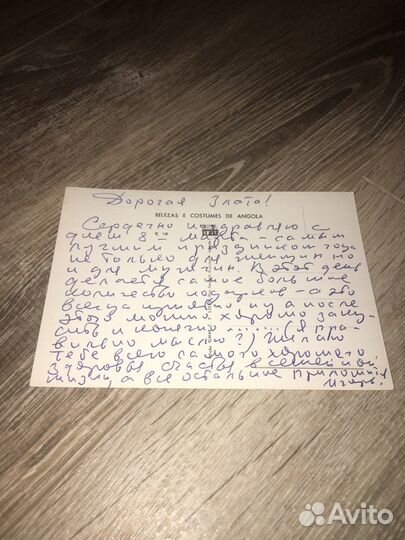 Дорогая Злата!
BELEZAS E COSTUMES DE ANGOLA
Сердечно поздравляю с
днем 8го марта – самым
лучшим праздником года
не только для женщин но
и для мужчин. В этот день
делается самое большое
количество подарков – а это
всегда приятно ну а после
этого можно хорошо заку-
сить и конечно ........ (я пра-
вильно мыслю?) Желаю
Тебе всего самого хорошего
здоровья счастья в семейной
жизни, а все остальное приложится
Игорь.
Avito